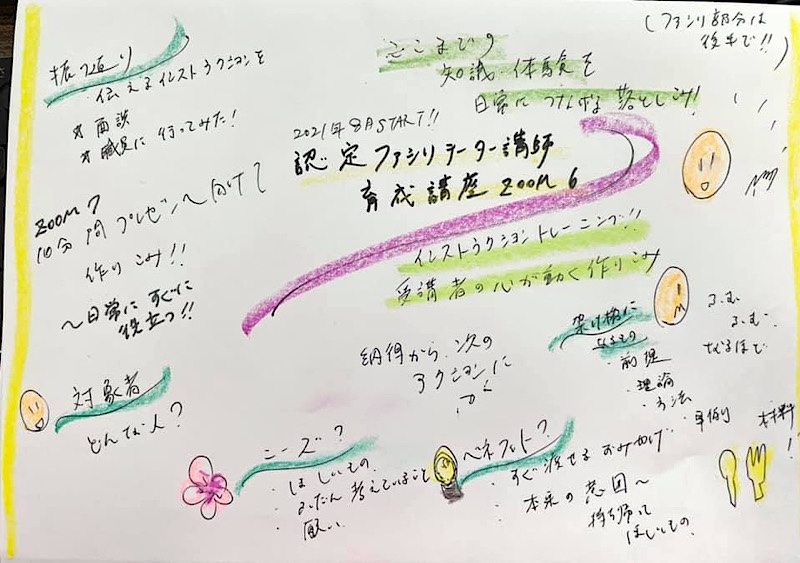 (ファシリ部分は
後半で!!)
振り返り
・伝えるイストラクションを
*面談
*職員に行ってみた!
ここまでの
知識・体験を
日常につなげる落としこみ!
2021年8月START!!
認定ファシリテーター講師
育成講座 ZOOM 6
イストラクショントレーニング!!
受講者の心が動く作りこみ
ZOOM 7
10分間プレゼンへ向けて
作りこみ!!
〜日常にすぐに
役立つ!!
納得から、次の
アクションに
架け橋に
なるもの
・前提
・理論
・方法
・事例
材料!
ふむ
ふむ、
なるほど
対象者
どんな人?
ニーズ?
・ほしいもの、
・ふだん考えていること
・願い、
ベネフィット?
・すぐ渡せるおみやげ
・本来の意図〜
持ち帰って
ほしいもの、